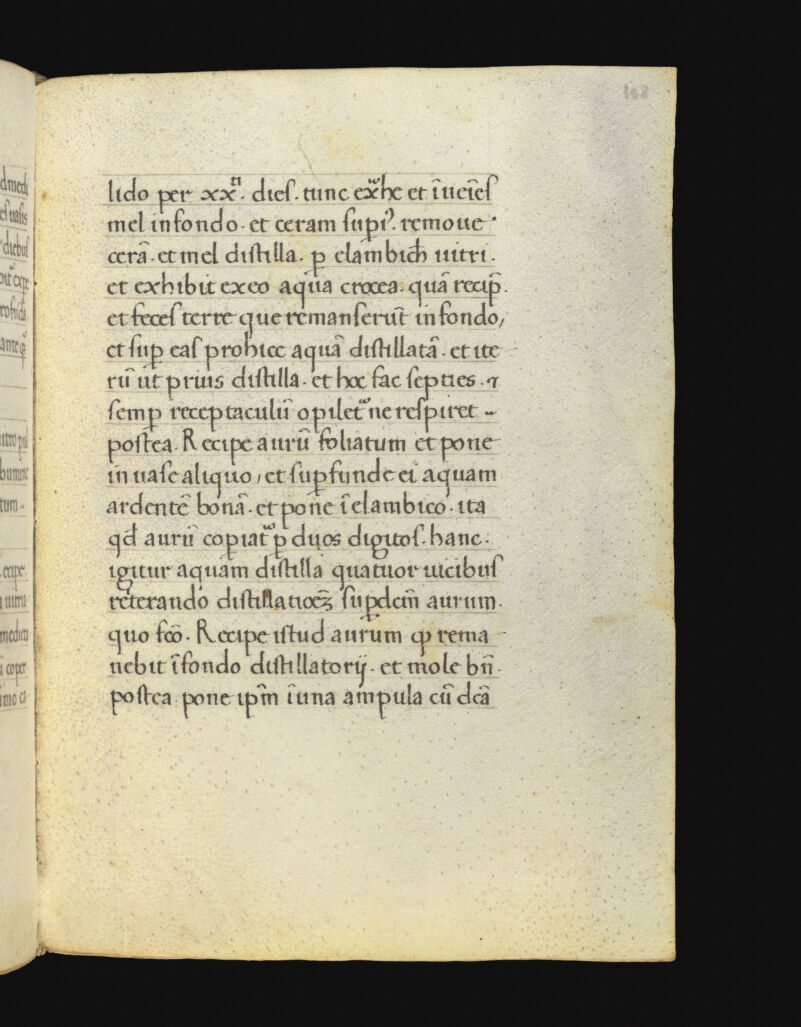 lido per xxti. dies. tunc exͣhe et īueīes
mel infondo. et ceram supiꝰ. remoue
cerā. et mel distilla. ꝑ elambicū uitri.
et exhibit exeo aqua crocea. quā recip̄.
et feces terre que remanserūt infondo,
et suꝑ eas prohice aquā distillatā. et ite
rū ut prius distilla. et hoc fac septies. ⁊
semꝑ receptaculū opiletͣ ne respiret
postea. Recipe aurū foliatum et pone
in uase aliquo, et suꝑfunde ei aquam
ardentē bonā. et pone ī elambico. ita
qđ aurū coꝑiatͣ ꝑ duos digitos. hanc.
igitur aquam distilla quatuor uicibus
reiterando distillatioēʒ suꝑdcm̄ aurum.
quo fcō. Recipe istud aurum ꝙ rema
nebit īfondo distillatorij. et mole bn̄.
postea pone ip̄m ī una ampula cū dcā